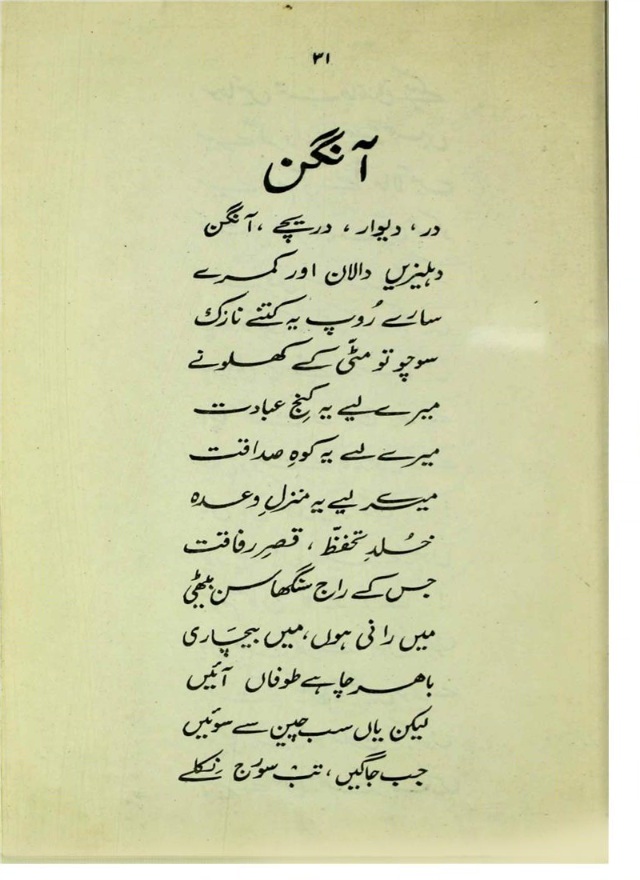 ۳۱
آنگن
در، دیوار، دریچے، آنگن
دہلیزیں دالان اور کمرے
سارے رُوپ یہ کتنے نازک
سوچو تو مٹّی کے کھلونے
میرے لیے یہ کنجِ عبادت
میرے لیے یہ کوہِ صداقت
میرے لیے یہ منزلِ وعدہ
خُلدِ تحفّظ، قصرِ رفاقت
جس کے راج سنگھاسن بیٹھی
میں رانی ہوں، میں بیچاری
باھر چاہے طوفاں آئیں
لیکن یاں سب چین سے سوئیں
جب جاگیں، تب سورج نِکلے